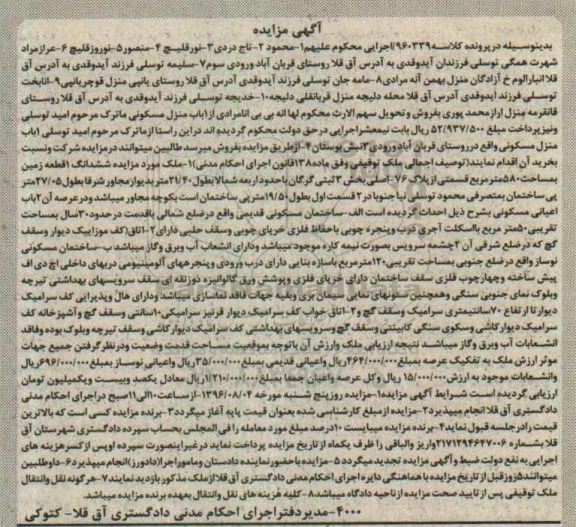 آگهی مزایده
بدینوسیله در پرونده کلاسه ۹۶۰۳۳۹/اجرایی محکوم علیهم ۱-محمود ۲-تاج دردی ۳-نورقلیچ ۴-منصور ۵-نوروزقلیچ ۶-عرازمراد
شهرت همگی توسلی فرزندان آیدوقدی به آدرس آق قلا روستای قربان آباد ورودی سوم ۷-سلیمه توسلی فرزند آیدوقدی به آدرس آق
قلا انبارالوم خ آزادگان منزل بهمن آنه مرادی ۸-مامه جان توسلی فرزند آیدوقدی آدرس آق قلا روستای یانپی منزل قوچریانپی ۹-انابخت
توسلی فرزند آیدوقدی آدرس آق قلا محله دلیجه منزل قربانقلی دلیجه ۱۰-خدیجه توسلی فرزند آیدوقدی به آدرس آق قلا روستای
قانقرمه منزل ارازمحمد پوری بفروش و تحویل سهم الارث محکوم لها انه بی بی انامرادی از ۱باب منزل مسکونی ماترک مرحوم امید توسلی
ونیز پرداخت مبلغ ۵۲/۹۳۷/۵۰۰ ریال بابت نیمعشراجرایی در حق دولت محکوم گردیده اند در این راستا از ماترک مرحوم امید توسلی ۱باب
منزل مسکونی واقع در روستای قربان آباد ورودی ۳نبش بوستان ۴-ازطریق مزایده بفروش میرسد طالبین میتوانند درمزایده شرکت ونسبت
بخرید آن اقدام نمایند(توصیف اجمالی ملک توقیفی وفق ماده ۱۳۸قانون اجرای احکام مدنی) ۱-ملک مورد مزایده ششدانگ ۱قطعه زمین
بمساحت ۵۸۰مترمربع قسمتی از پلاک ۷۶-اصلی بخش ۳ثبتی گرگان باحدود اربعه شمالا بطول ۲۱/۴۰متر بدیوار مجاور شرقا بطول ۲۷/۰۵متر
پی ساختمان بمتصرفی محمود توسلی نیا جنوبا در ۲ قسمت اول بطول ۱۹/۵۰مترپی ساختمان است بکوچه مجاور میباشد ودر عرصه آن ۲باب
اعیانی مسکونی بشرح ذیل احداث گردیده است الف-ساختمان مسکونی قدیمی واقع درضلع شمالی باقدمت درحدود ۳۰سال بمساحت
تقریبی ۵۰متر مربع بااسکلت آجری درب وپنجره چوبی باحفاظ فلزی خرپای چوبی وسقف حلبی دارای ۲-اتاق(کف موزاییک دیوار وسقف
گچ که درضلع شرقی آن ۲چشمه سرویس بصورت نیمه کاره موجود میباشد ودارای انشعاب آب وبرق وگاز میباشد ب-ساختمان مسکونی
نوساز واقع درضلع جنوبی بمساحت تقریبی ۱۲۰مترمربع باسازه بنایی دارای درب ورودی وپنجره‌های آلومینیومی دربهای داخلی اچ دی اف
پیش ساخته وچهارچوب فلزی سقف ساختمان دارای خرپای فلزی وپوشش ورق گالوانیزه ذوزنقه ای سقف سرویسهای بهداشتی تیرچه
وبلوک نمای جنوبی سنگی وهمچنین ستونهای نمایی سیمان بری وبقیه جهات فاقد نماسازی میباشد ودارای هال وپذیرایی کف سرامیک
دیوارتا ارتفاع ۷۰سانتیمتری سرامیک وسقف گچ و ۲-اتاق خواب کف سرامیک دیوار قرنیز سرامیکی ۱۰سانتی وسقف گچ وآشپزخانه کف
سرامیک دیوار کاشی وسکوی سنگی کابینتی وسقف گچ وسرویسهای بهداشتی کف سرامیک دیوار کاشی وسقف تیرچه وبلوک بوده وفاقد
انشعابات آب وبرق وگاز میباشد نتیجه ارزیابی ملک وارزش آن باتوجه بموقعیت مساحت قدمت وضعیت ودرنظر گرفتن جمیع جهات
موثر ارزش ملک به تفکیک عرصه بمبلغ ۴۶۴/۰۰۰/۰۰۰ ریال واعیانی قدیمی بمبلغ ۳۵/۰۰۰/۰۰۰ ریال واعیانی نوساز بمبلغ ۶۹۶/۰۰۰/۰۰۰ ریال
وانشعابات موجود به ارزش ۱۵/۰۰۰/۰۰۰ ریال وکل عرصه واعیان جمعا بمبلغ ۱/۲۱۰/۰۰۰/۰۰۰ ریال معادل یکصد وبیست ویکمیلیون تومان
ارزیابی گردیده است شرایط آگهی مزایده ۱-مزایده روزپنج شنبه مورخه ۱۳۹۶/۰۸/۰۴-ازساعت ۱۰الی ۱۱صبح دراجرای احکام مدنی
دادگستری آق قلا انجام میپذیرد ۲-مزایده از مبلغ کارشناسی شده بعنوان قیمت پایه آغاز میگردد ۳-برنده مزایده کسی است که بالاترین
قیمت رادرجلسه قبول نماید ۴-برنده مزایده میبایست ۱۰درصد مبلغ مورد معامله را فی المجلس بحساب سپرده دادگستری شهرستان آق
قلا بشماره ۲۱۷۱۲۹۴۶۴۷۰۰۶واریز والباقی را ظرف یکماه از تاریخ مزایده پرداخت نماید درغیر اینصورت سپرده اوپس ازکسرهزینه های
اجرایی به نفع دولت ضبط وآگهی مزایده تجدید میگردد ۵-مزایده باحضور نماینده دادستان ومامور اجرا(دادورز)انجام میپذیرد ۶-داوطلبین
میتوانند ۵روز قبل از تاریخ مزایده باهماهنگی دایره اجرای احکام مدنی دادگستری آق قلا ازملک مذکور بازدید نمایند ۷-هرگونه نقل وانتقال
ملک توقیفی پس از تایید صحت مزایده ازناحیه دادگاه میباشد ۸-کلیه هزینه های نقل وانتقال بعهده برنده مزایده میباشد.
۴۰۰۰-مدیر دفتر اجرای احکام مدنی دادگستری آق قلا- کتوکی